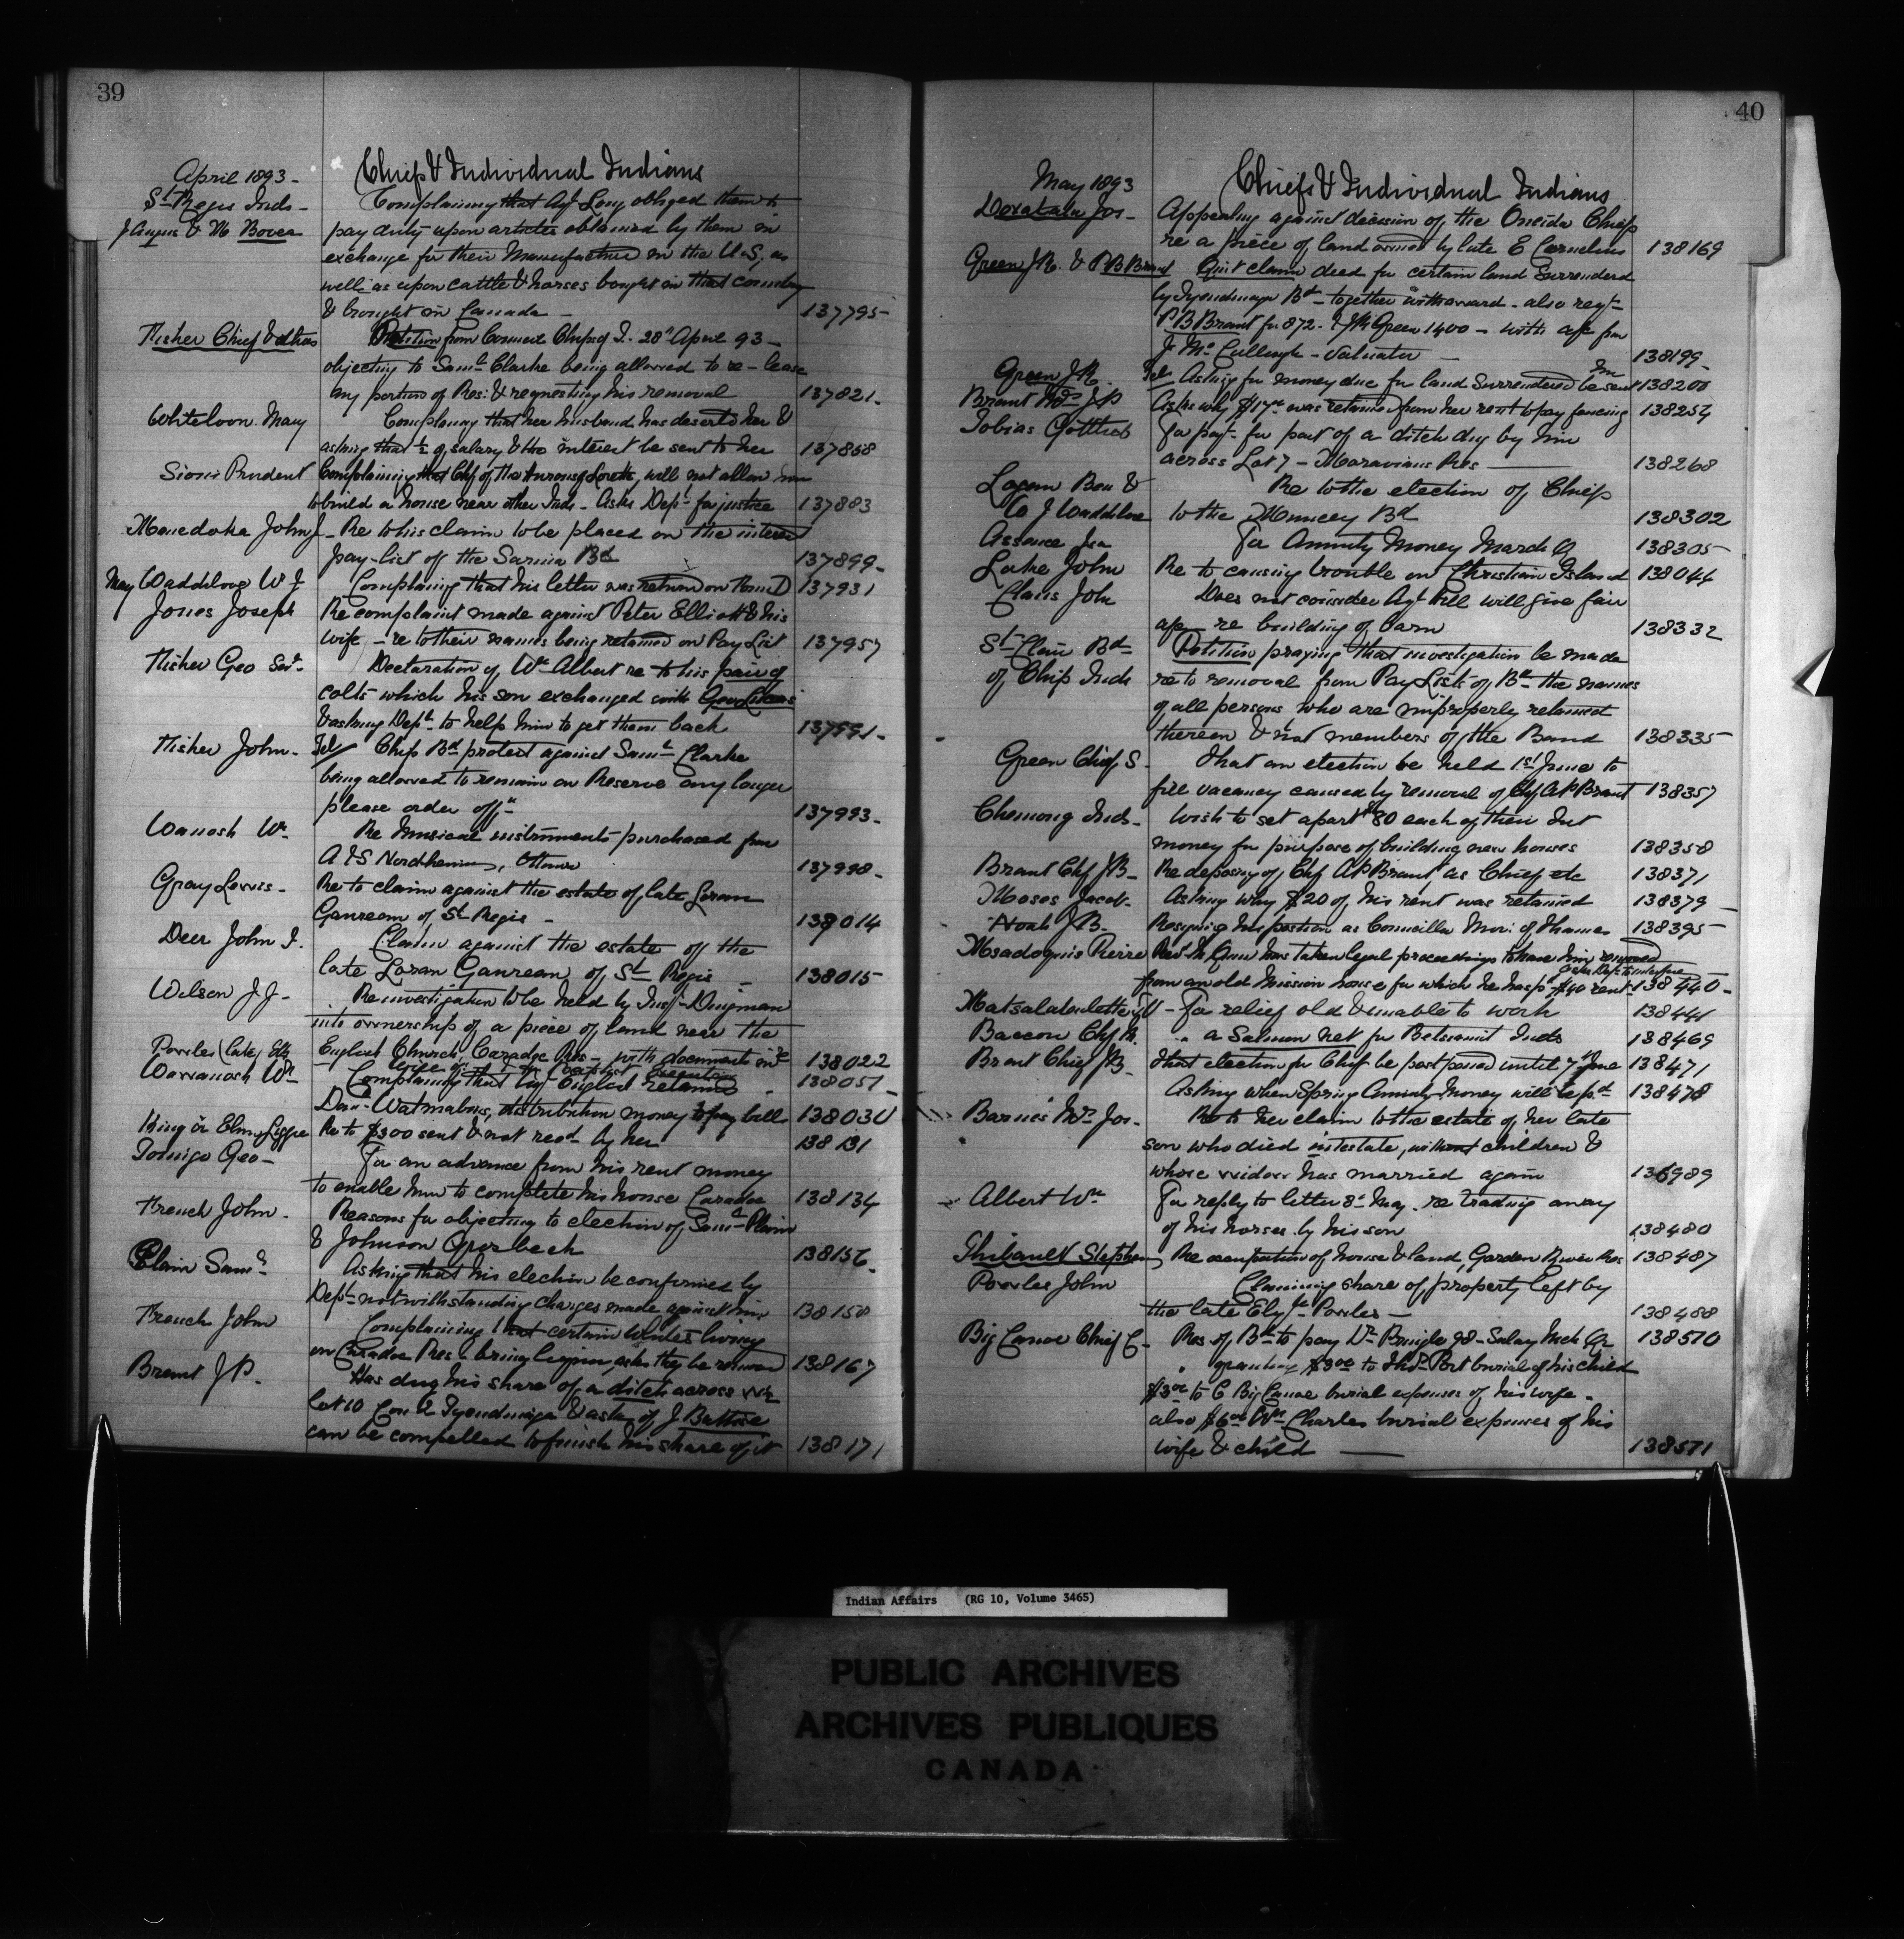 39
April 1893 - Chiefs & Individual Indians
St Regis Inds - Complaining that Agt Long obliged them to
J Angus & M Bover pay duty upon articles obtained by them in
exchange for their Manufactures in the U.S. as
well as upon cattle & horses bought in that country
& brought in Canada - 137795-
Fisher Chief & others Petition from Council Chips of T. 28" April 93 -
objecting to Saml Clarke being allowed to re-lease
any portion of Res: & requesting his removal 137821-
Whiteloon Mary Complaining that her husband has deserted her &
asking that ½ of salary & the interest be sent to her 137858
Sioui Prudent Complaining that Chf of the Hurons of Lorette, will not allow him
to build a house near other Inds - Asks Dept for justice 137883
Manedoka John J - Re to his claim to be placed on the interest
pay-list of the Sarnia Bd 137899-
May Waddilove W J Complaining that his letter was returned on him 137931
Jones Joseph Re complaint made against Peter Elliott & his
wife - re to their names being retained on Pay List 137957
Fisher Geo Senr Declaration of Wm Albert re to his pair of
colts which his son exchanged with Geo Likens
& asking Dept to help him to get them back 137991-
Fisher John - Tel Chip Bd protest against Saml Clarke
being allowed to remain on Reserve any longer
please order off 137993-
Wanosh Wm Re Musical instruments purchased from
A & S Nordheimer, Ottawa 137998-
Gray Lewis - Re to claim against the estate of late Loran
Ganream of St Regis - 138014
Deer John I. Claim against the estate of the
late Loran Ganream of St Regis - 138015-
Wilson J J - Re investigation to be held by Insp Dingman
into ownership of a piece of land near the
English Church, Caradoc Res - with documents 138022
Powles (late) Eli 138051
Wawanosh Wm Complaining that Agt English retained
Danl Watmabus, distribution money to pay bill 138030
King or Elm Re to $300 sent & not recd by her 138131
Tomigo Geo - For an advance from his rent money
to enable him to complete his house Caradoc 138134
French John - Reasons for objecting to election of Saml Plain
& Johnson Grosbeck 138156-
Plain Saml Asking that his election be confirmed by
Dept notwithstanding charges made against him 138158
French John Complaining that certain Whites living
on Caradoc Res & bring liquor, asks they be removed 138167
Brant J P. Has dug his share of a ditch across
Lot 10 Con 2 Tyendinaga & asks if J Battise
can be compelled to finish his share of it 138171
40
May 1893 Chiefs & Individual Indians
Doxtator Jos - Appealing against decision of the Oneida Chiefs
re a piece of land owned by late E Cornelius 138169
Green J R. & P B Brant Quit claim deed for certain land Surrendered
by Tyendinaga Bd - together with award - also reqt
P B Brant for 872 - & J R Green 1400 - with ap from
J Mc Cullough - Valuator - 138199
Green J R. Tel Asking for money due for land Surrendered be sent him 138200
Brant Mrs J P Asks why $17 was retained from her rent to pay fencing 138254
Tobias Gottlieb For payt for part of a ditch dug by him
across Lot 7 - Moravians Res 138268
Logan Ben & Re to the election of Chiefs
W J Waddilove to the Muncey Bd 138302
Assance Jsa For Annuity Money March Q 138305-
Lake John Re to causing trouble on Christian Island 138044
Claus John Does not consider Agt Hill will give fair
ap re building of barn 138332
St Clair Bd Petition praying that investigation be made
of Chip Inds re to removal from Pay Lists of Bd the names
of all persons who are improperly retained
thereon & not members of the Band 138335
Green Chief S. That an election be held 1st June to
fill vacancy caused by removal of Chf A P Brant 138357
Chemong Inds - Wish to set apart $80 each of their Int
money for purpose of building new houses 138358
Brant Chf J B - Re deposing of Chf A P Brant as Chief etc 138371
Moses Jacob - Asking why $20 of his rent was retained 138379
Noah J B. Resigning his position as Councillor Mor: of Thames 138395-
Msadoquis Pierre Revd Mr Quin has taken legal proceedings to have him removed
from an old Mission house for which he has pd $40 rent - asks Dept to interfere 138440-
For relief old & unable to work 138441
Bacon Chf M. " a Salmon net for Betsiamit Inds 138469
Brant Chief J B - That election for Chief be postponed until 7th June 138471
Asking when Spring Annuity Money will be pd 138478
Barnes Mrs Jos - Re to her claim to the estate of her late
son who died intestate, without children &
whose widow has married again 136989
Albert Wm For reply to letter 8" May - re trading away
of his horses by his son 138480
Thibault Stephen Re occupation of house & land, Garden River Res 138487
Powles John Claiming share of property left by
the late Elijh Powles - 138488
Big Canoe Chief C - Res of Bd to pay Dr Pringle 98 - Salary Mch Qr 138570
" granting $3 00 to Thos Port burial of his child
$3 00 to C Big Canoe burial expenses of his wife -
also $6 00 Wm Charles burial expenses of his
wife & child 138571
Indian Affairs (RG 10, Volume 3465)
PUBLIC ARCHIVES
ARCHIVES PUBLIQUES
CANADA